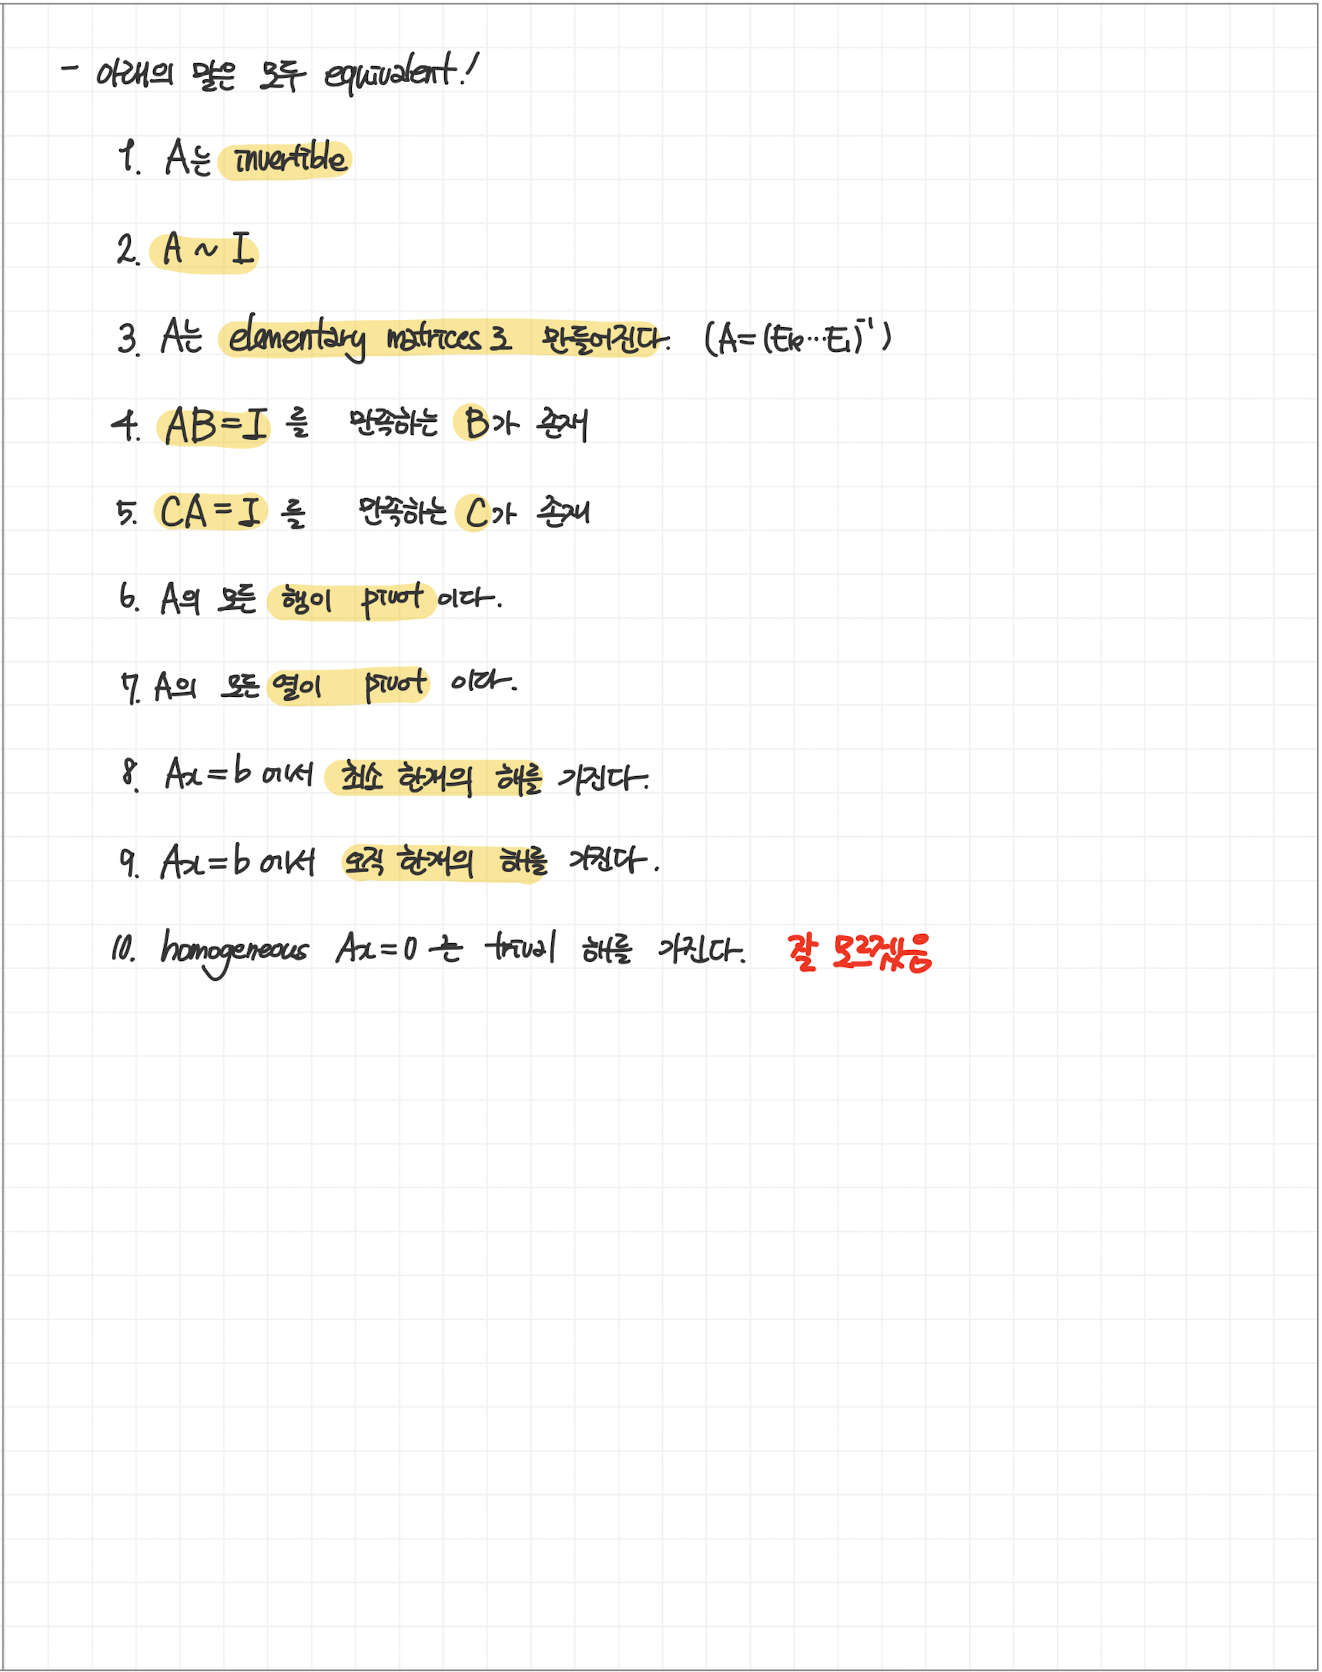 - 아래의 말은 모두 equivalent!
1. A는 invertible
2. A ~ I
3. A는 elementary matrices로 만들어진다. (A=(Ek…E1)⁻¹)
4. AB=I 를 만족하는 B가 존재
5. CA=I 를 만족하는 C가 존재
6. A의 모든 행이 pivot이다.
7. A의 모든 열이 pivot 이다.
8. Ax=b에서 최소 한개의 해를 가진다.
9. Ax=b에서 오직 한개의 해를 가진다.
10. homogeneous Ax=0는 trivial 해를 가진다. 잘 모르겠음